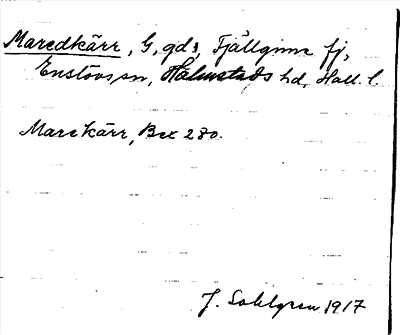 Maredkärr, G, gd 3, Fjällginna fj,
Enslövs sn, Halmstads hd, Hall. l
Marekärr, Bex 280.
J. Sahlgren 1917